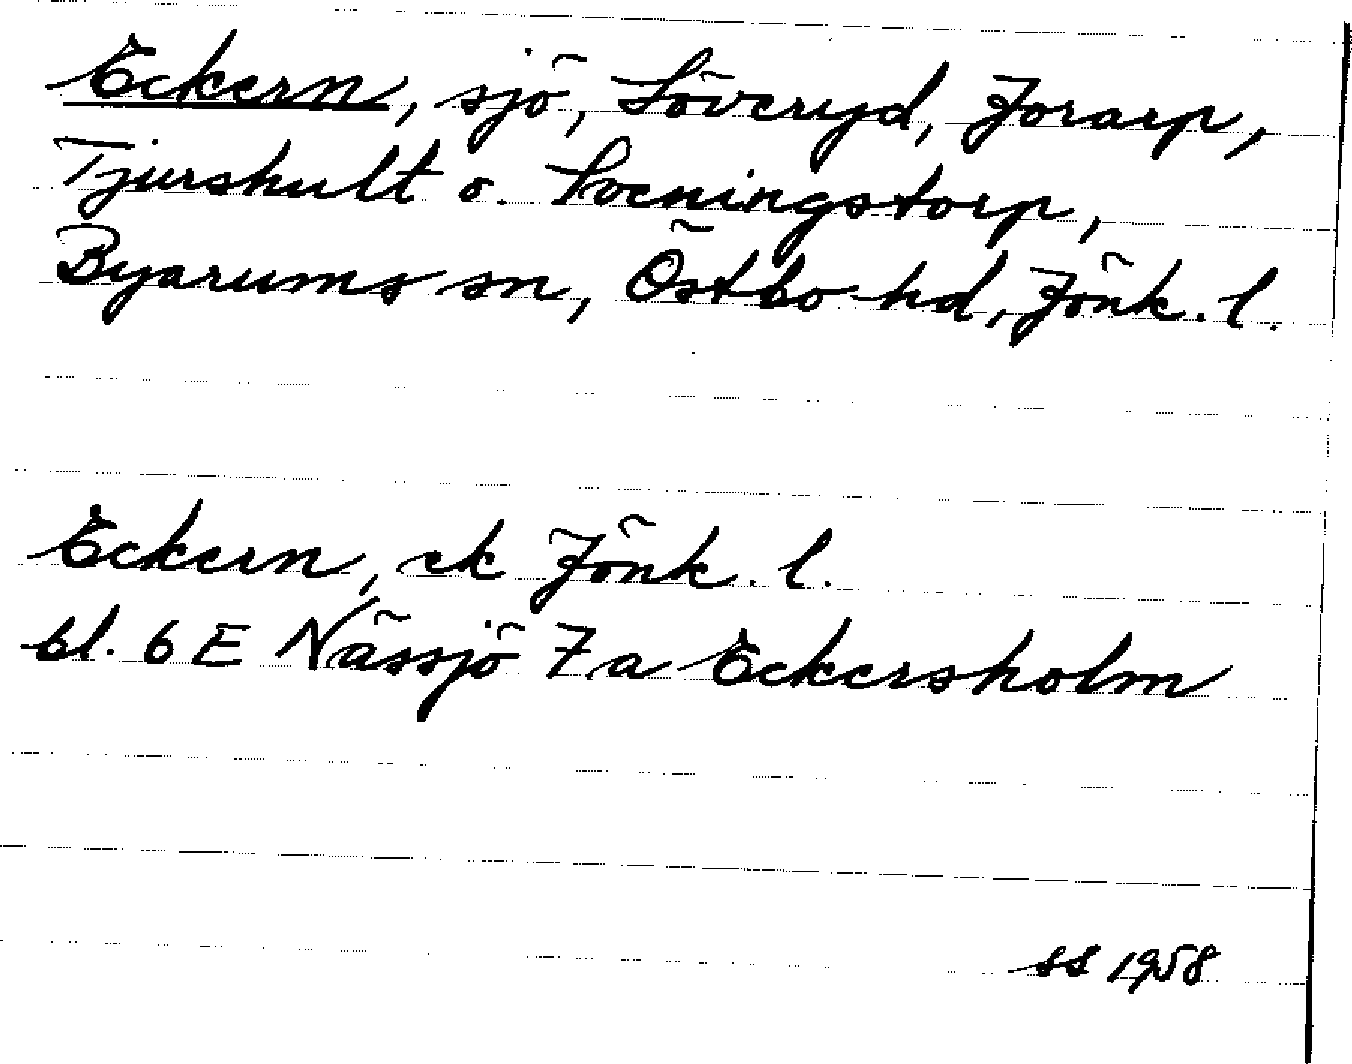 Eckern, sjö, Löveryd, Jorarp,
Tjurshult o. Horningstorp,
Byarums sn, Östbo hd, Jönk. l.
Eckern, ek Jönk. l.
bl. 6 E Nässjö 7 a Eckersholm
SS 1958